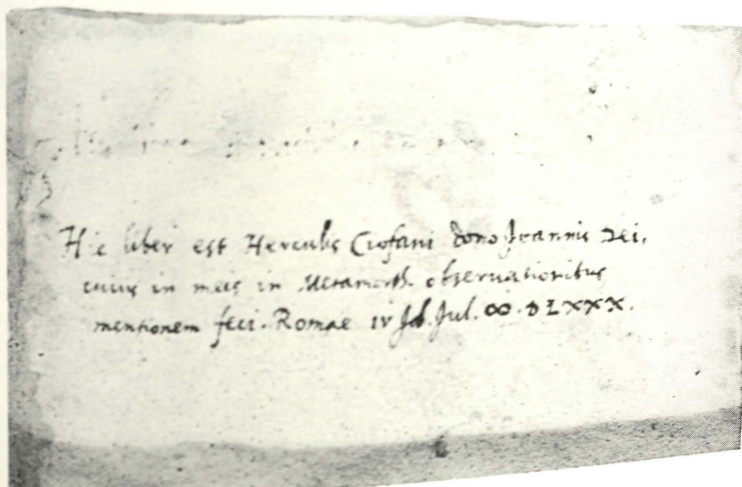 Hic liber est Herculis Ciofani dono Joannis Dei,
cuius in meis in Metamorph. observationibus
mentionem feci. Romae IV Id. Jul. ꝏ.DLXXX.